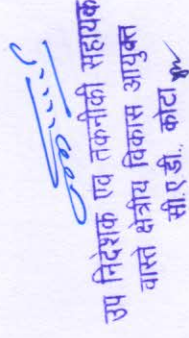 उप निदेशक एवं तकनीकी सहायक
वास्ते क्षेत्रीय विकास आयुक्त
सी.ए.डी. कोटा